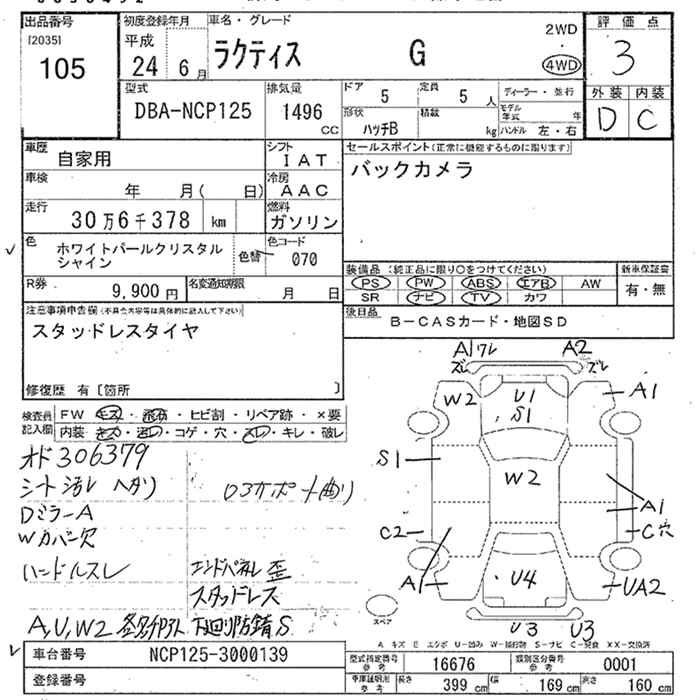 出品番号
[2035]
105
初度登録年月
平成
24 6月
車名・グレード
ラクティス G
2WD
4WD
評価点
3
外装 内装
D C
型式
DBA-NCP125
排気量
1496
CC
ドア 5
定員 5人
形状
ハッチB
積載
kg
ディーラー・並行
モデル年式 年
ハンドル 左・右
車歴
自家用
シフト
IAT
車検
年 月( 日)
冷房
AAC
走行
30万6千378 km
燃料
ガソリン
色
ホワイトパールクリスタル
シャイン
色替
色コード
070
R券
9,900円
名変通知期限
月 日
セールスポイント(正常に機能するものに限ります)
バックカメラ
装備品 (純正品に限り○をつけてください)
PS PW ABS エアB AW
SR ナビ TV カワ
新車保証書
有・無
後日品
B-CASカード・地図SD
注意事項申告欄(不具合内容等は具体的に記入して下さい)
スタッドレスタイヤ
修復歴 有[箇所 ]
検査員
記入欄
FW キズ・凹・ヒビ割・リペア跡・×要
内装 キズ・汚レ・コゲ・穴・スレ・キレ・破レ
オド306379
シート汚レ ヘタリ
Dミラー A
Wカバー欠
ハンドルスレ
ロアサポート曲り
エンドパネル歪
スタッドレス
A,U,W2 下廻り防錆S
A1ワレ A2
ズレ ズレ
W2 U1 A1
S1
S1
W2
A1
C2 C穴
A1 U4 UA2
スペア
U3 U3
A キズ E エクボ U 凹み W 補修跡 S サビ C 腐食 XX 交換済
車台番号
NCP125-3000139
登録番号
型式指定番号
参考
16676
類別区分番号
参考
0001
車庫証明用
参考
長さ 399cm
幅 169cm
高さ 160cm